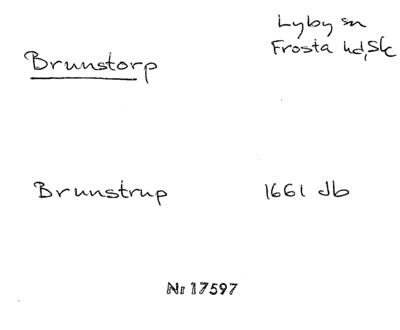 Lyby sn
Frosta hd, Sk
Brunstorp
Brunstrup 1661 Jb
Nr 17597